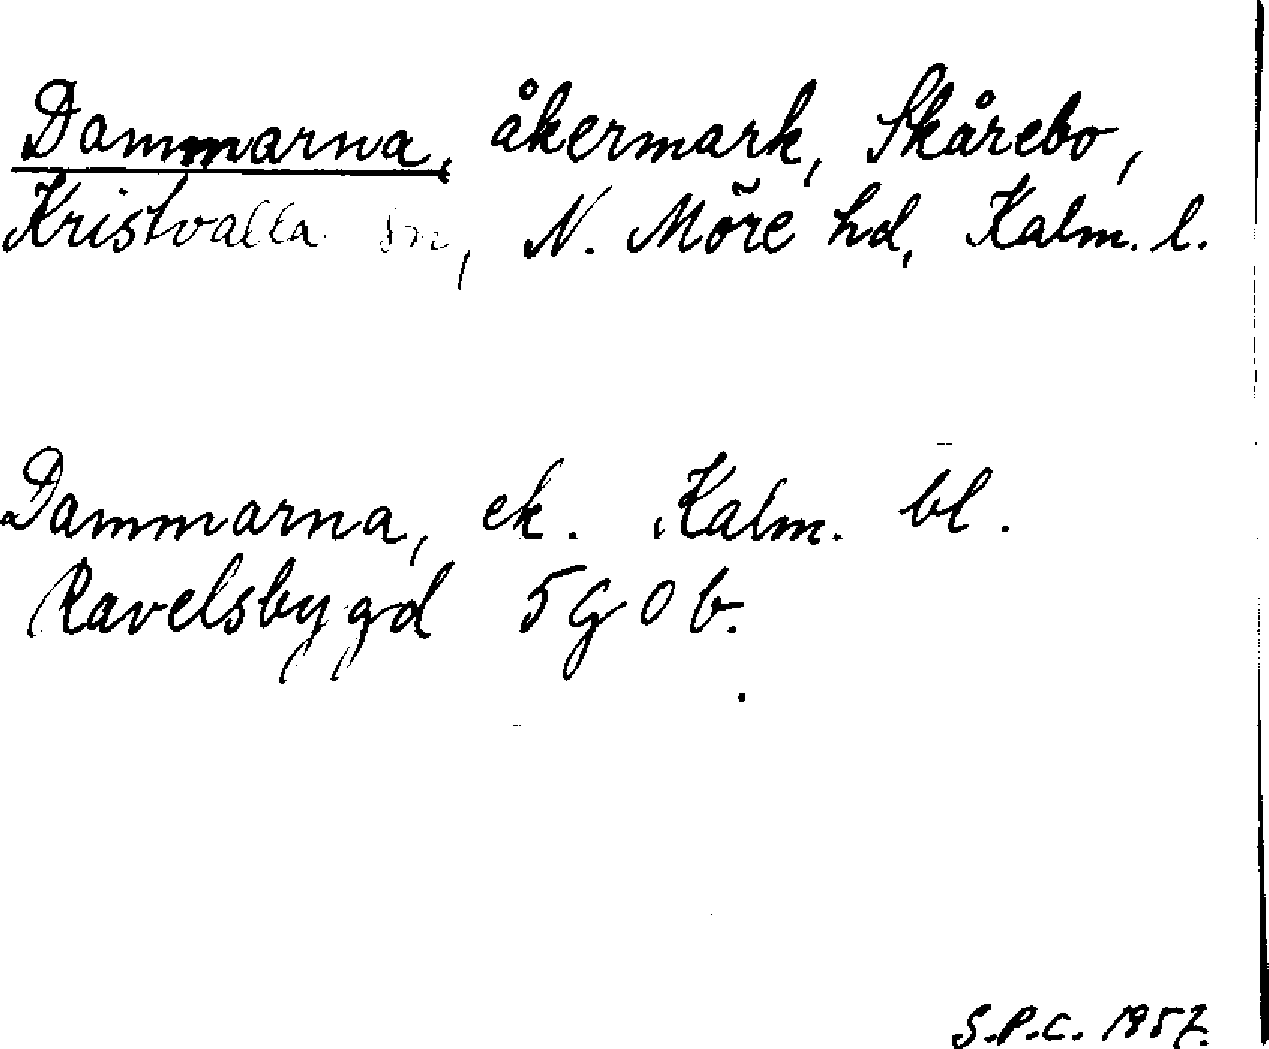 Dammarna, åkermark, Skårebo,
Kristvalla sn, N. Möre hd, Kalm. l.
Dammarna, ek. Kalm. bl.
Ravelsbygd 5 G 0 b.
S.P.C. 1957.